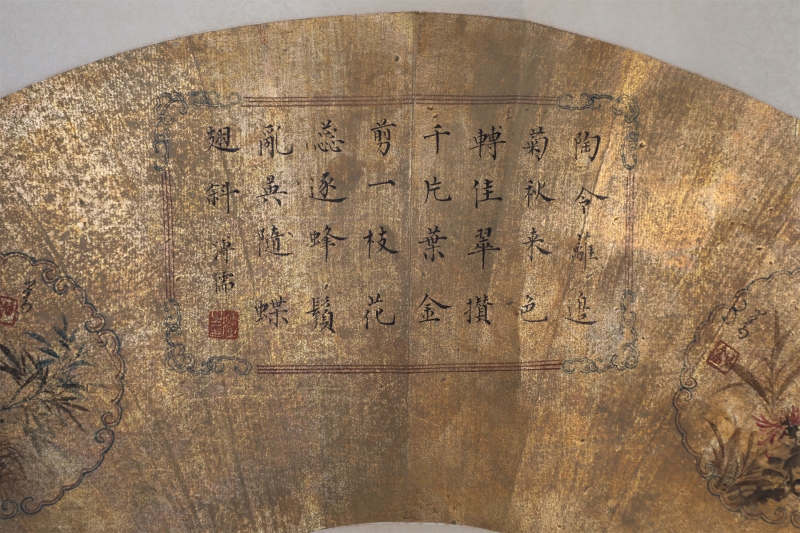 陶令籬邊
菊秋来色
轉佳翠攢
千片葉金
剪一枝花
蕊逐蜂鬚
亂英隨蝶
翅斜 溥儒